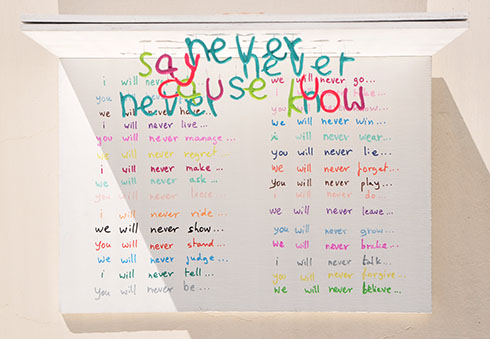 say never never
never cause know
i will never
you
we will never have...
i will never live...
you will never manage...
we will never regret...
i will never make...
we will never ask...
you will never leave...
i will never ride...
we will never show...
you will never stand...
we will never judge...
i will never tell...
you will never be...
we will never go...
we will never win...
i will never wear...
you will never lie...
we will never forget...
you will never play...
i will never do...
we will never leave...
you will never grow...
we will never brake...
i will never talk...
you will never forgive...
we will never believe...